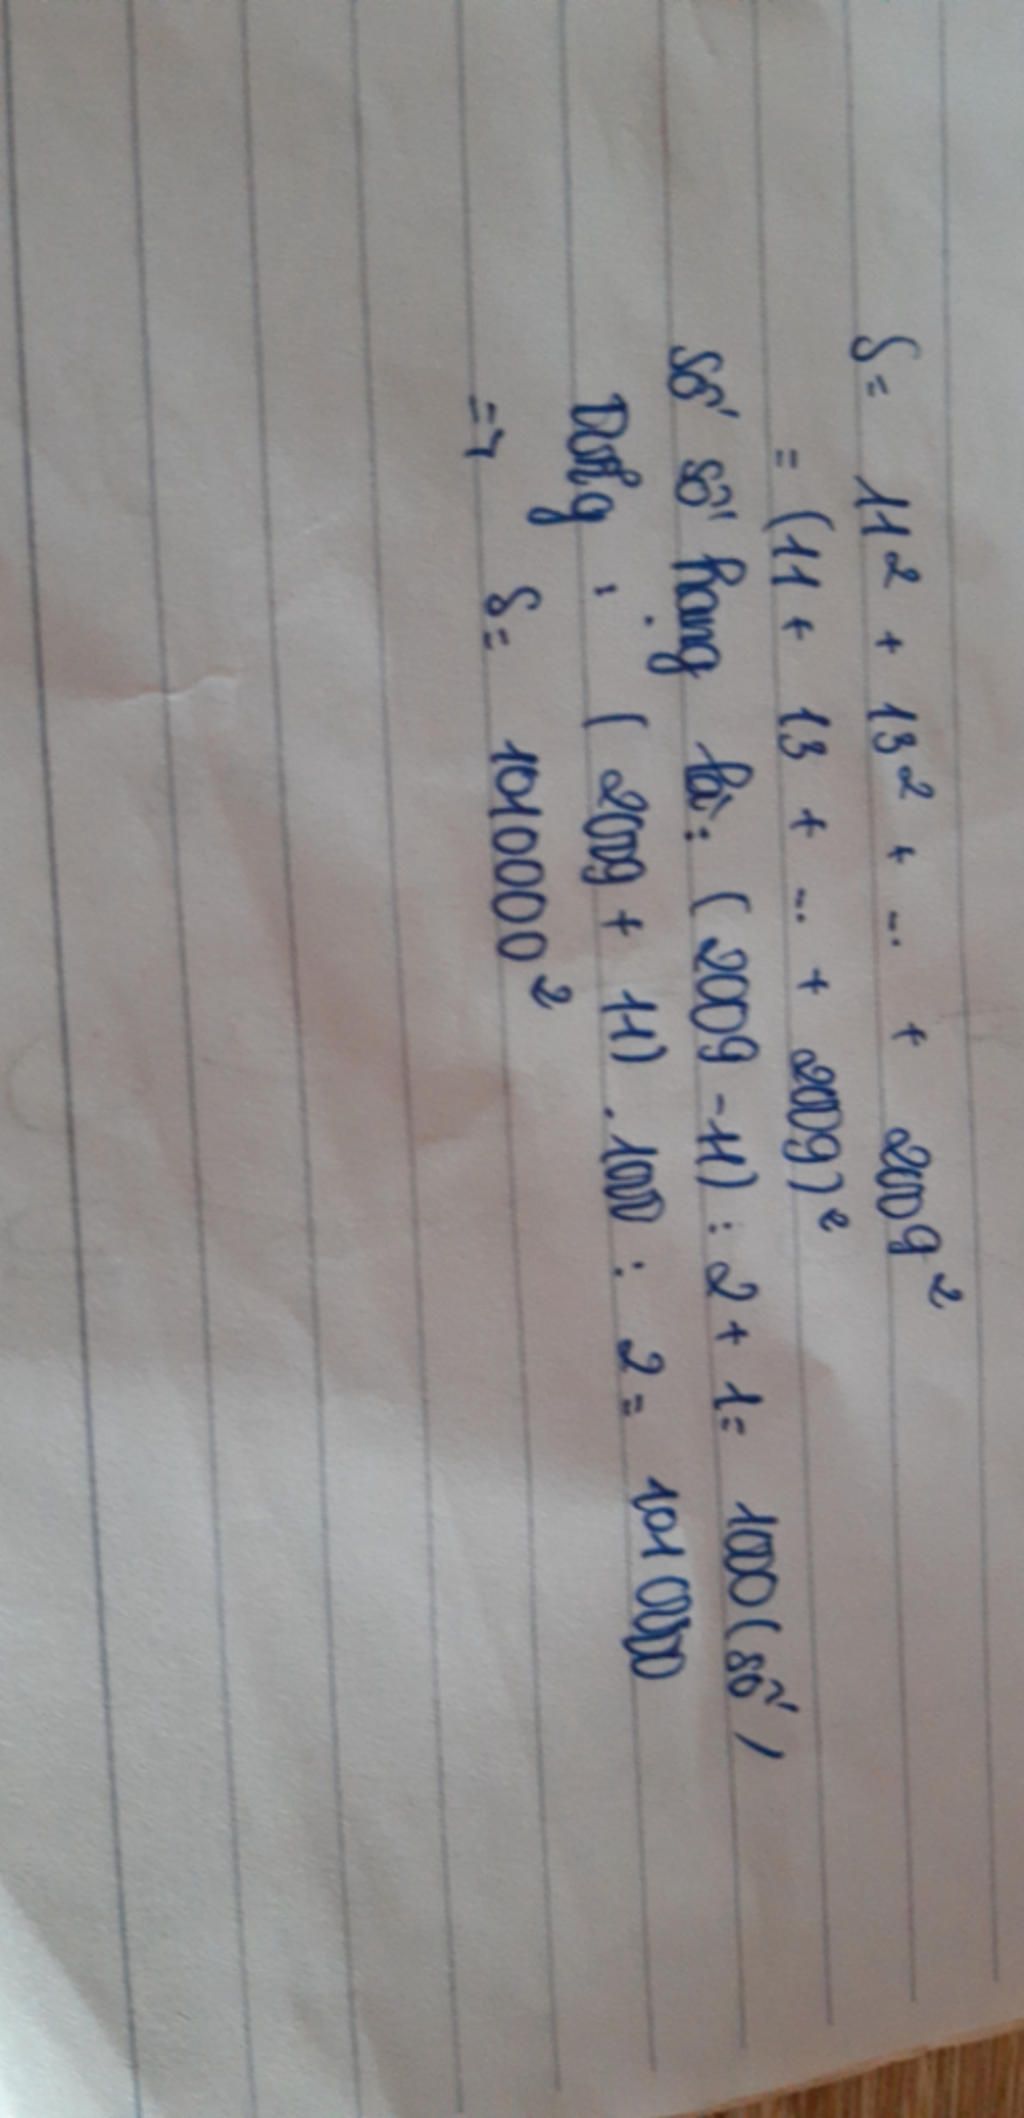 S = 11² + 13² + ... + 2009²
= (11 + 13 + ... + 2009)²
Số số hạng là: (2009 - 11) : 2 + 1 = 1000 (số)
Tổng : (2009 + 11) . 1000 : 2 = 1010000
=> S = 1010000²